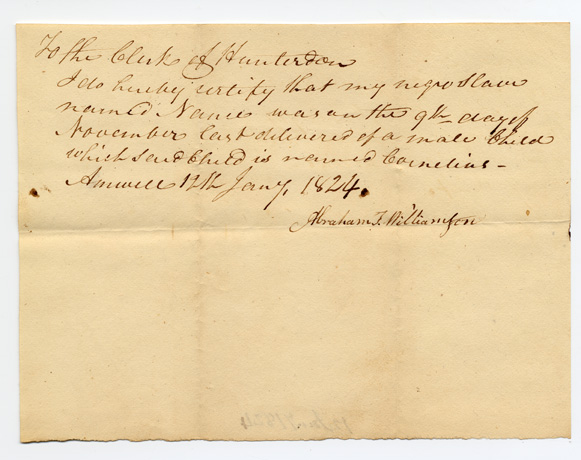 To the Clerk of Hunterdon
I do hereby certify that my negro slave
named Nance was on the 9th day of
November last delivered of a male Child
which said Child is named Cornelius –
Amwell 12th Jany, 1824.
Abraham T. Williamson